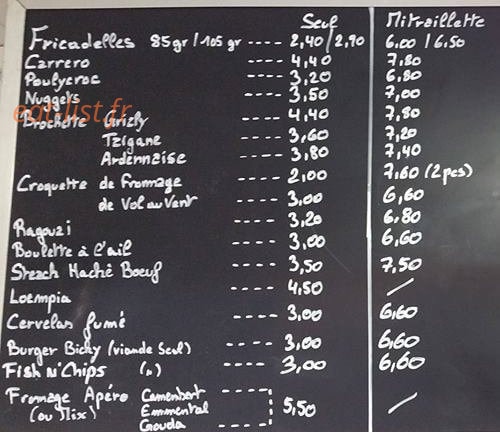 Seul Mitraillette
Fricadelles 85gr/105 gr ---- 2,40/2,90 6,00/6,50
Carrero ---- 4,40 7,80
Poulycroc ---- 3,20 6,80
Nuggets ---- 3,50 7,00
eatlist.fr
Brochette Grizly ---- 4,40 7,80
Tzigane ---- 3,60 7,20
Ardennaise ---- 3,80 7,40
Croquette de fromage ---- 2,00 7,60 (2pcs)
de Vol au Vent ---- 3,00 6,60
Ragouzi ---- 3,20 6,80
Boulette à l'ail ---- 3,00 6,60
Steack Haché Boeuf ---- 3,50 7,50
Loempia ---- 4,50 /
Cervelas fumé ---- 3,00 6,60
Burger Bicky (viande Seul) ---- 3,00 6,60
Fish N'Chips (") ---- 3,00 6,60
Fromage Apéro Camembert ----
(ou Mix) Emmental 5,50 /
Gouda ----